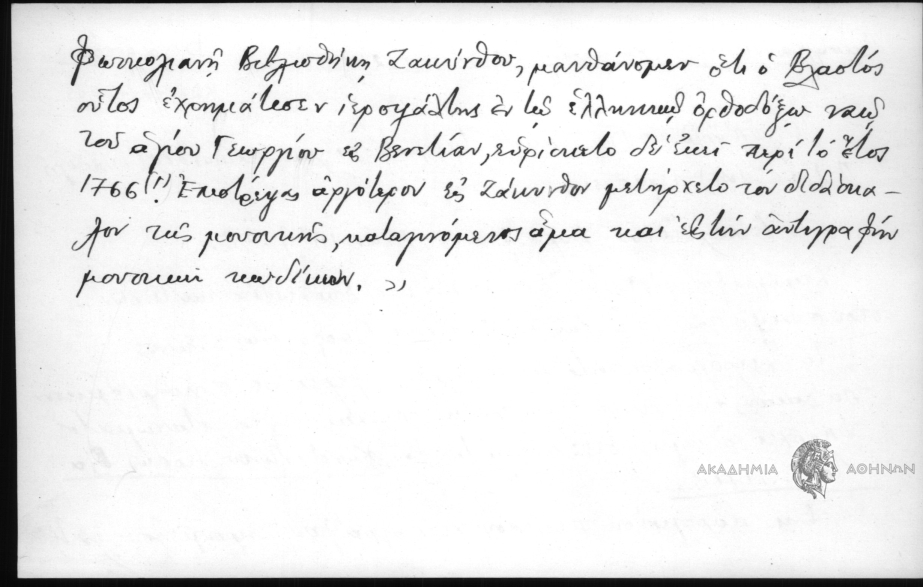 Φωσκολιανῇ Βιβλιοθήκῃ Ζακύνθου, μανθάνομεν ὅτι ὁ Βλαστός
οὗτος ἐχρημάτισεν ἱεροψάλτης ἐν τῷ ἑλληνικῷ ὀρθοδόξῳ ναῷ
τοῦ ἁγίου Γεωργίου εἰς Βενετίαν, εὑρίσκετο δὲ ἐκεῖ περὶ τὸ ἔτος
1766 (!)! Ἐπιστρέψας ἀργότερον εἰς Ζάκυνθον μετήρχετο τὸν διδάσκα-
λον τῆς μουσικῆς, καταγινόμενος ἅμα καὶ εἰς τὴν ἀντιγραφὴν
μουσικῶν κωδίκων. »
ΑΚΑΔΗΜΙΑ ΑΘΗΝΩΝ